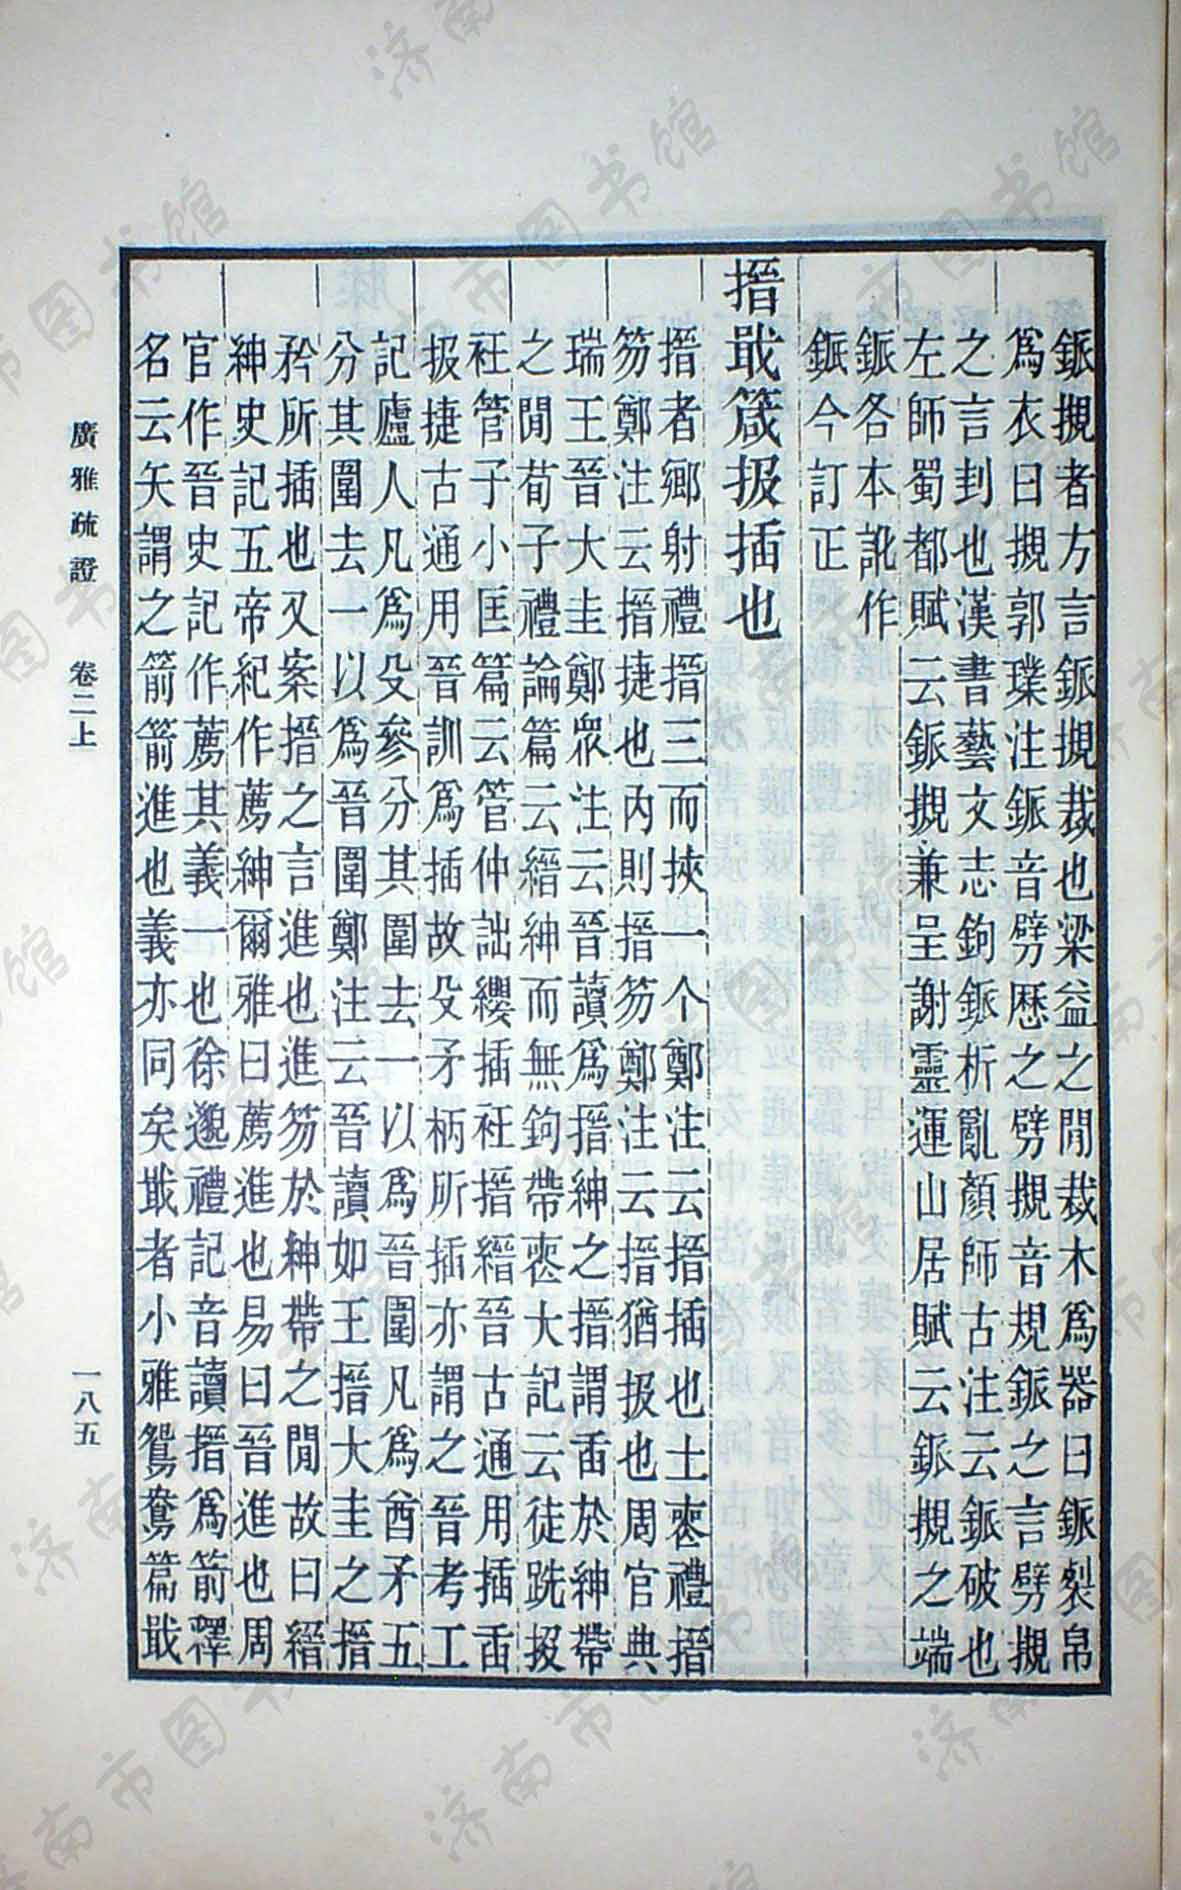 釽摫者方言釽摫裁也梁益之閒裁木爲器曰釽裂帛
爲衣曰摫郭璞注釽音劈歷之劈摫音規釽之言劈摫
之言刲也漢書藝文志鉤釽析亂顏師古注云釽破也
左師蜀都賦云釽摫兼呈謝靈運山居賦云釽摫之端
釽各本訛作
鋠今訂正
搢戢箴扱插也
搢者鄉射禮搢三而挾一个鄭注云搢插也士喪禮搢
笏鄭注云搢捷也內則搢笏鄭注云搢猶扱也周官典
瑞王晉大圭鄭眾注云晉讀爲搢紳之搢謂臿於紳帶
之閒荀子禮論篇云縉紳而無鉤帶喪大記云徒跣扱
衽管子小匡篇云管仲詘纓插衽搢縉晉古通用插臿
扱捷古通用晉訓爲插故殳矛柄所插亦謂之晉考工
記廬人凡爲殳參分其圍去一以爲晉圍凡爲酋矛五
分其圍去一以爲晉圍鄭注云晉讀如王搢大圭之搢
矜所插也又案搢之言進也進笏於紳帶之閒故曰縉
紳史記五帝紀作薦紳爾雅曰薦進也易曰晉進也周
官作晉史記作薦其義一也徐邈禮記音讀搢爲箭釋
名云矢謂之箭箭進也義亦同矣戢者小雅鴛鴦篇戢
廣雅疏證　卷二上
一八五